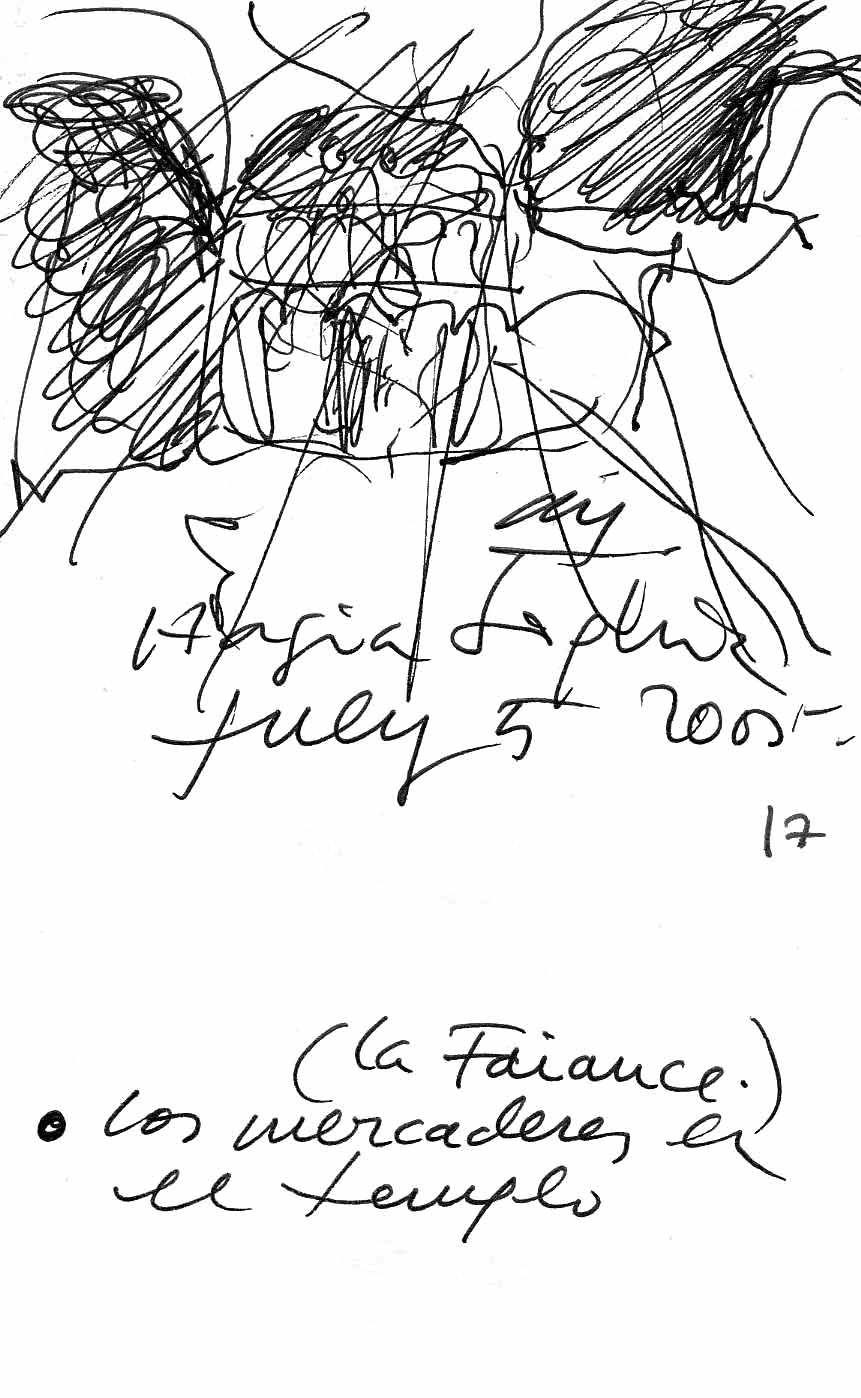 Hagia Sophia
July 5 2005.
17
(la Faiance.)
• los mercaderes en
el templo